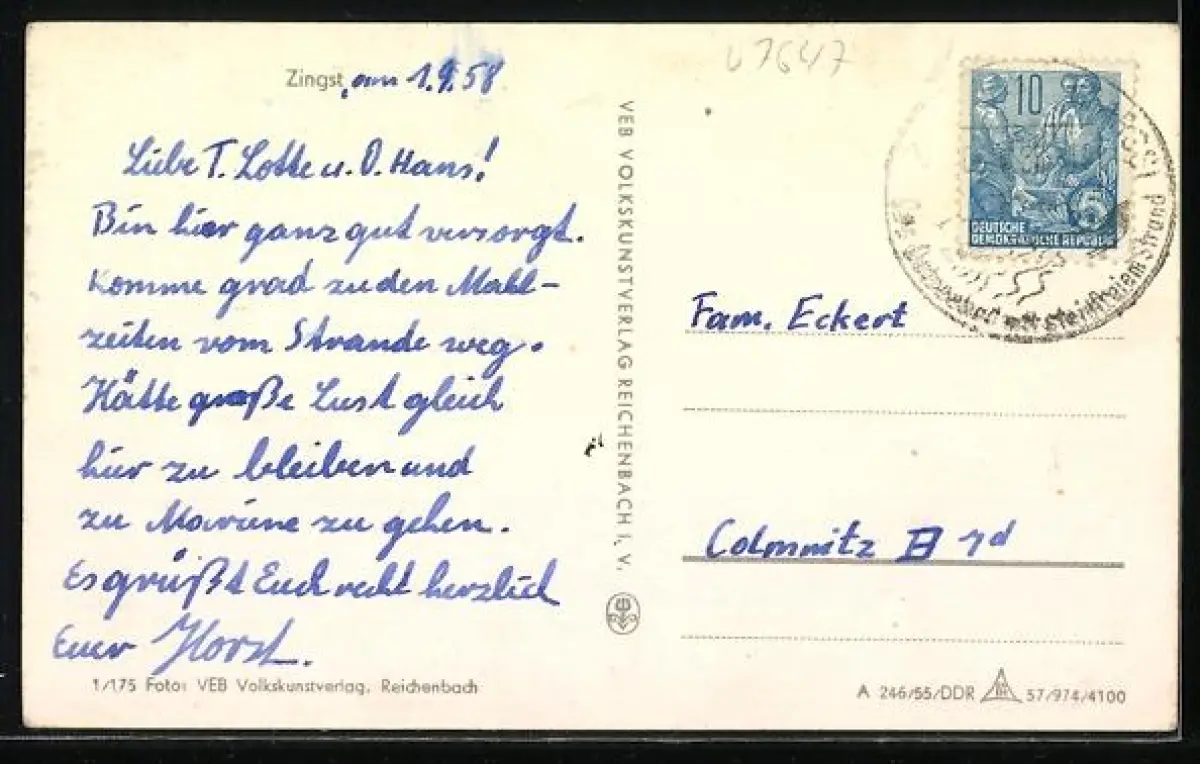 Zingst, am 1.9.58
Liebe T. Lotte u. O. Hans!
Bin hier ganz gut versorgt.
Komme grad zu den Mahl-
zeiten vom Strande weg.
Hätte große Lust gleich
hier zu bleiben und
zu Marine zu gehen.
Es grüßt Euch recht herzlich
Euer Horst.
1/175 Foto: VEB Volkskunstverlag, Reichenbach
VEB VOLKSKUNSTVERLAG REICHENBACH I. V.
7647
10
5
DEUTSCHE
DEMOKRATISCHE REPUBLIK
mit steinfreiem Strand
Fam. Eckert
Colmnitz
A 246/55/DDR 57/974/4100